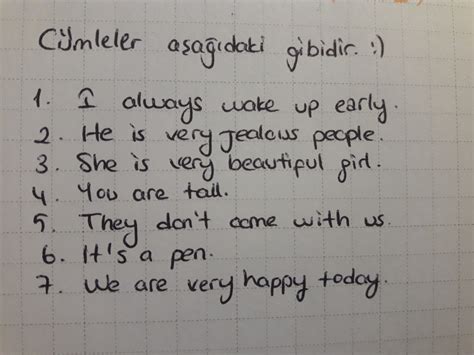 Cümleler aşağıdaki gibidir. :)
1. I always wake up early.
2. He is very jealous people.
3. She is very beautiful girl.
4. You are tall.
5. They don't come with us.
6. It's a pen.
7. We are very happy today.